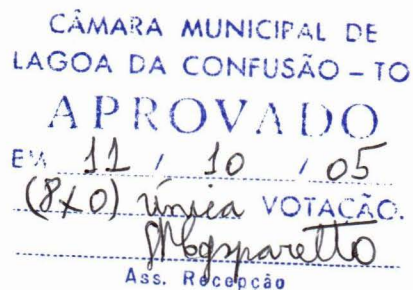 CÂMARA MUNICIPAL DE
LAGOA DA CONFUSÃO – TO
APROVADO
EM 11 / 10 / 05
(8x0) única VOTAÇÃO.
Ass. Recepção